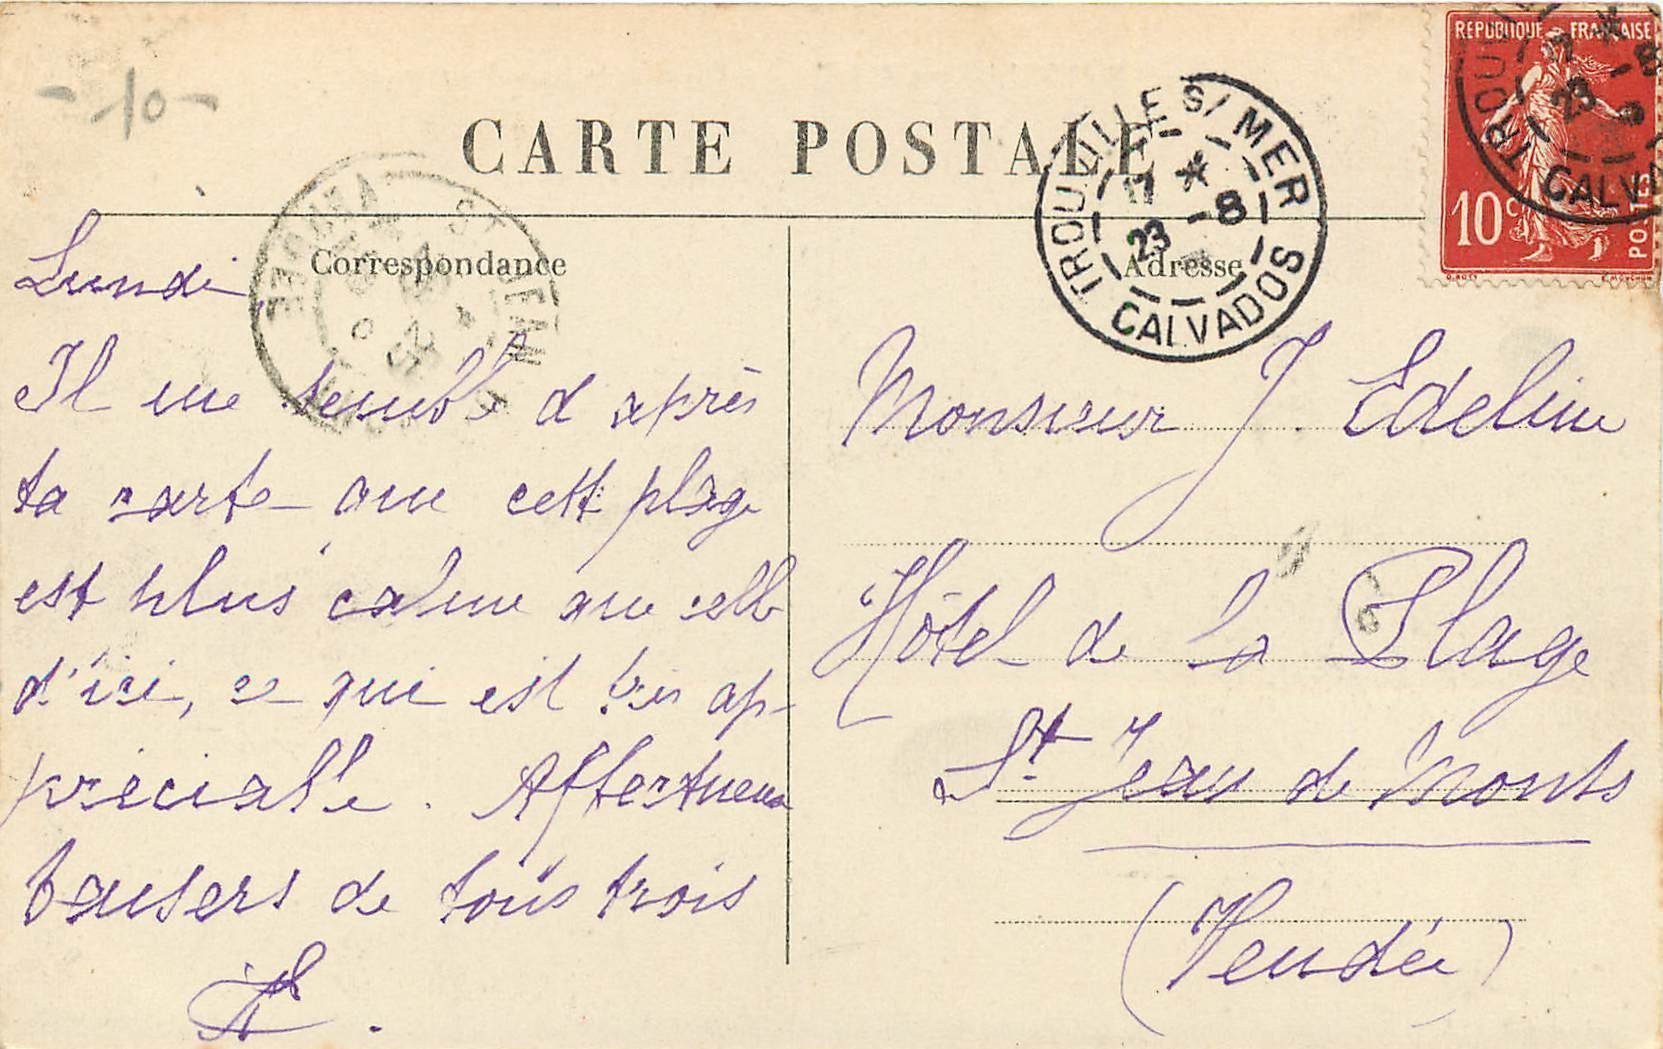 - 10 -
CARTE POSTALE
Correspondance
Adresse
TROUVILLE S/ MER
17 *
23 - 8
CALVADOS
REPUBLIQUE FRANÇAISE
10c
POSTES
TROUVILLE
17 *
23 - 8
CALVADOS
ST JEAN
VENDÉE
Lundi,
Il me semble d'après
ta carte que cette plage
est plus calme que celle
d'ici, ce qui est très ap-
préciable. Affectueux
baisers de tous trois
Monsieur J. Edeline
Hôtel de la Plage
St Jean de Monts
(Vendée)